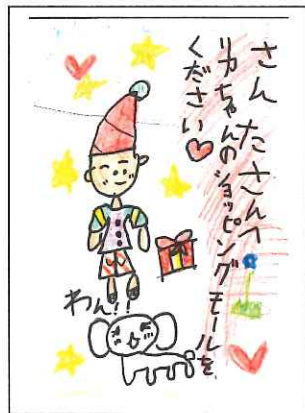 さんたさんへ
リカちゃんのショッピングモールを
ください
わん!!